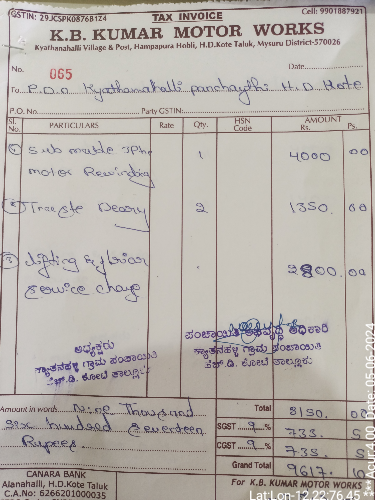 GSTIN: 29JCSPK0876B1Z4 TAX INVOICE Cell: 9901887921
K.B. KUMAR MOTOR WORKS
Kyathanahalli Village & Post, Hampapura Hobli, H.D.Kote Taluk, Mysuru District-570026
No. 065 Date
To P.D.O Kyathanahalli panchaythi H.D Kote
P.O. No. Party GSTIN:
Sl. No. PARTICULARS Rate Qty. HSN Code AMOUNT Rs. Ps.
1 3Phe 1 4000 00
motor Rewinding
2 2 1350. 00
3 lifting &
2800.00
service charg
ಅಧ್ಯಕ್ಷರು
ಕ್ಯಾತನಹಳ್ಳಿ ಗ್ರಾಮ ಪಂಚಾಯಿತಿ
ಹೆಚ್.ಡಿ. ಕೋಟೆ ತಾಲ್ಲೂಕು
ಪಂಚಾಯಿತಿ ಅಭಿವೃದ್ಧಿ ಅಧಿಕಾರಿ
ಕ್ಯಾತನಹಳ್ಳಿ ಗ್ರಾಮ ಪಂಚಾಯಿತಿ
ಹೆಚ್.ಡಿ. ಕೋಟೆ ತಾಲ್ಲೂಕು
Amount in words Nine Thousand
Six hundred Seventeen
Rupees
Total 8150. 00
SGST 9 % 733. 5
CGST 9 % 733. 5
Grand Total 9617.
CANARA BANK
Alanahalli, H.D.Kote Taluk
C.A.No: 6266201000035
For K.B. KUMAR MOTOR WORKS
Lat:Lon-12.22:76.45
Date: 05-06-2024